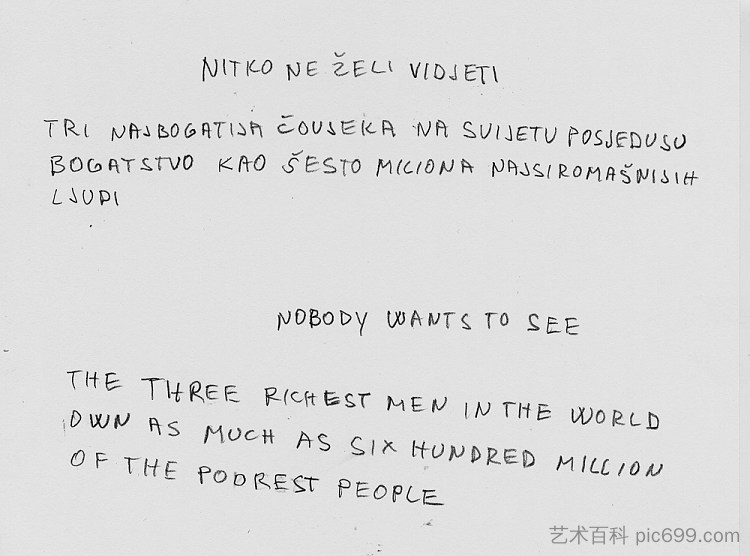 NITKO NE ŽELI VIDJETI
TRI NAJBOGATIJA ČOVJEKA NA SVIJETU POSJEDUJU
BOGATSTVO KAO ŠESTO MILIONA NAJSIROMAŠNIJIH
LJUDI
NOBODY WANTS TO SEE
THE THREE RICHEST MEN IN THE WORLD
OWN AS MUCH AS SIX HUNDRED MILLION
OF THE POOREST PEOPLE
艺术百科 pic699.com